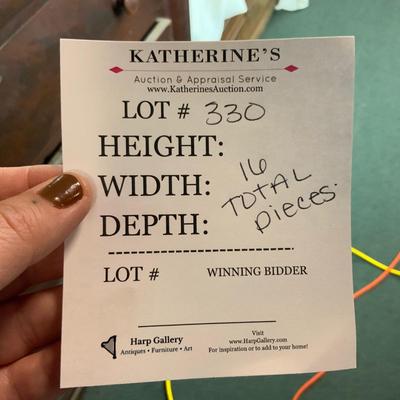 KATHERINE'S
Auction & Appraisal Service
www.KatherinesAuction.com
LOT # 330
HEIGHT:
WIDTH:
DEPTH:
16
TOTAL
Pieces.
LOT #
WINNING BIDDER
Harp Gallery
Antiques • Furniture • Art
Visit
www.HarpGallery.com
For inspiration or to add to your home!